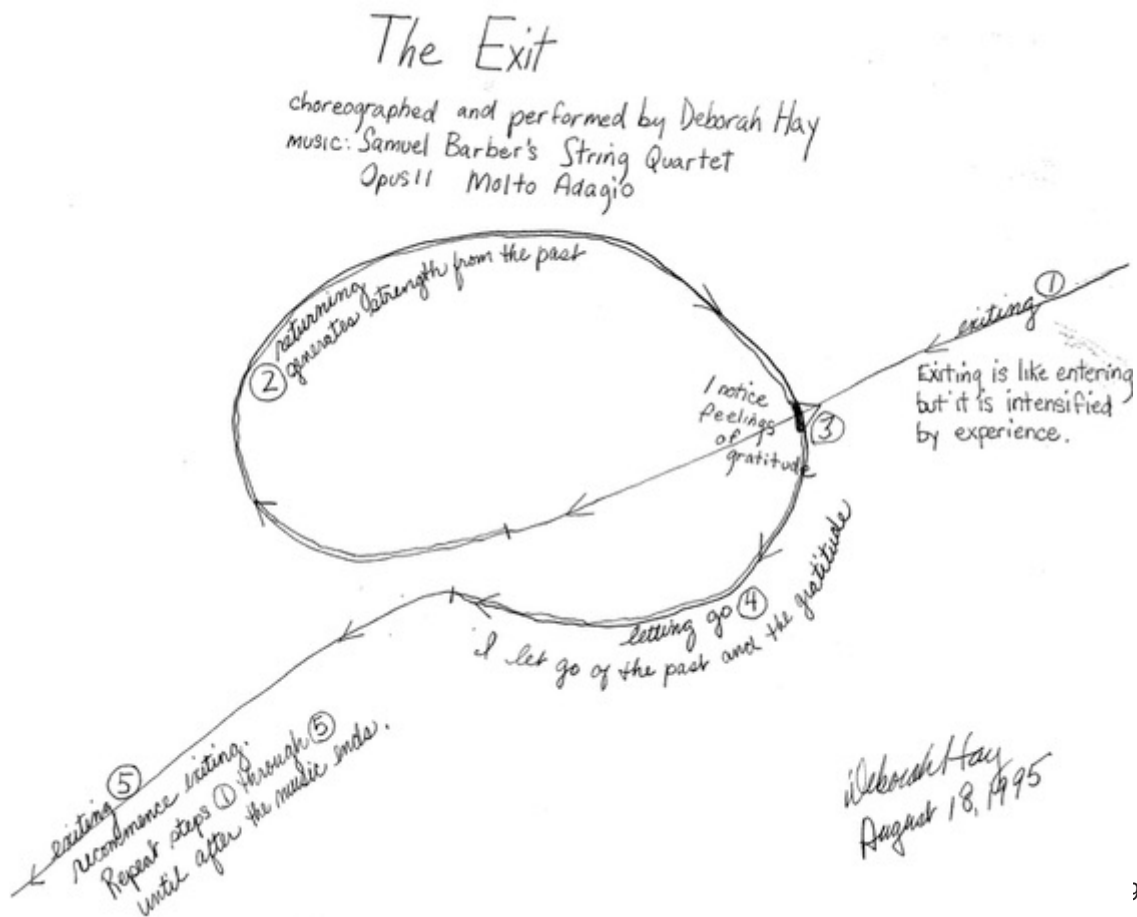 The Exit
choreographed and performed by Deborah Hay
music: Samuel Barber's String Quartet
Opus 11 Molto Adagio
exiting ①
Exiting is like entering
but it is intensified
by experience.
② returning
generates strength from the past
I notice
feelings
of
gratitude
③
letting go ④
I let go of the past and the gratitude
exiting ⑤
recommence exiting.
Repeat steps ① through ⑤
until after the music ends.
Deborah Hay
August 18, 1995